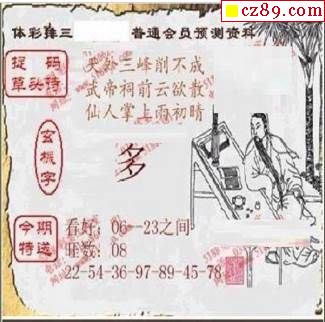 cz89.com
体彩排三 普通会员预测资料
捉码
草头诗
天外三峰削不成
武帝祠前云欲散
仙人掌上雨初晴
玄机字
多
今期
特送
看好：06--23之间
胆数：08
22-54-36-97-89-45-78